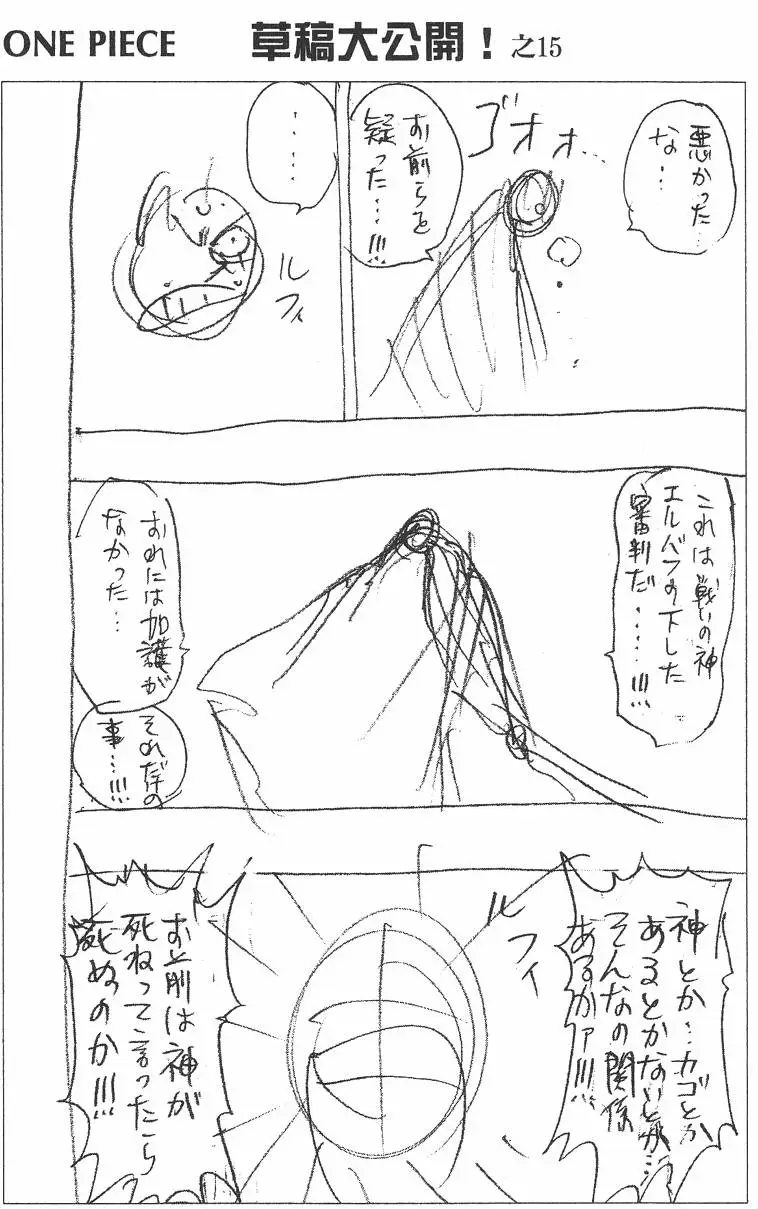 ONE PIECE 草稿大公開！之15
悪かった
な…
ゴオォ…
お前らを
疑った…!!!
‥‥
ルフィ
これは戦いの神
エルバフの下した
審判だ……!!!
おれには加護が
なかった…
それだけの
事…!!!
神とか…カゴとか
あるとかないとか…
そんなの関係
あるかァ!!!
ルフィ
お前は神が
死ねって言ったら
死ぬのか!!!